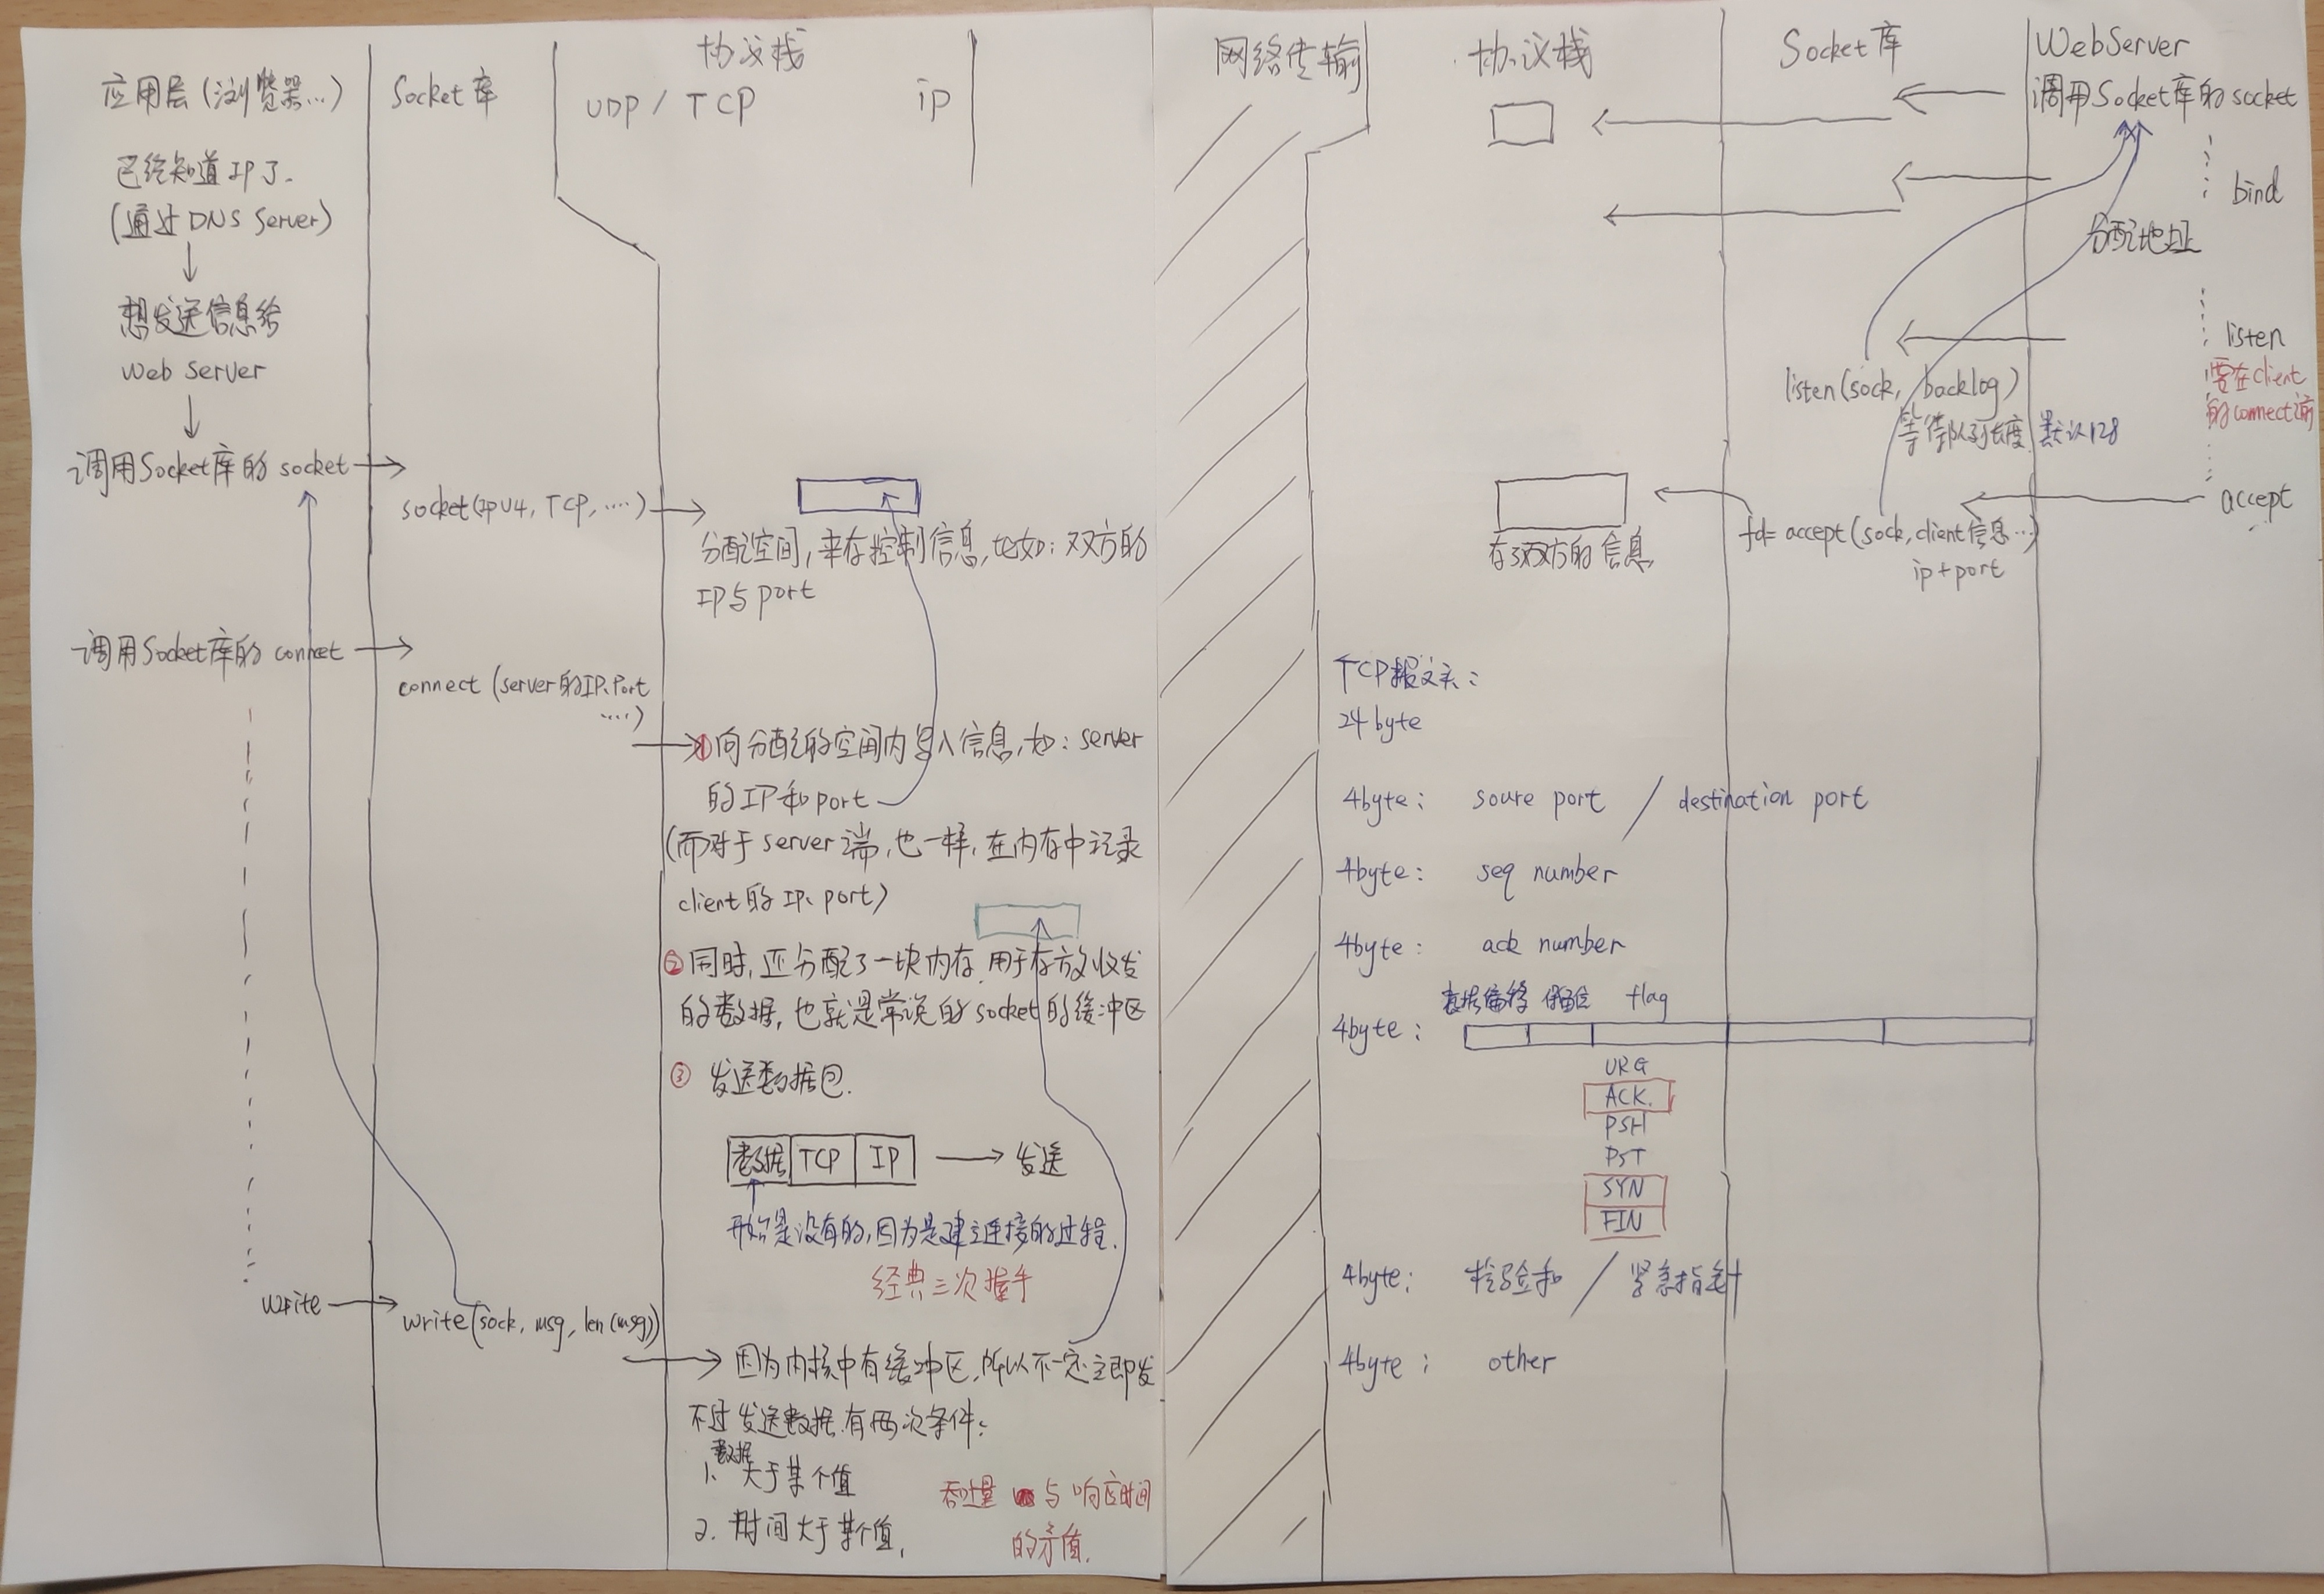 应用层(浏览器...)
Socket库
协议栈
UDP / TCP
ip
已经知道IP了.
(通过DNS Server)
想发送信息给
Web Server
调用Socket库的 socket
socket(IPV4, TCP, ....)
分配空间,来存控制信息,比如:双方的
IP与port
调用Socket库的 connet
connect (server的IP、Port
....)
①向分配的空间内写入信息,如:server
的IP和port
(而对于server端,也一样,在内存中记录
client的IP、port)
②同时,还分配了一块内存,用于存放收发
的数据,也就是常说的socket的缓冲区
③ 发送数据包.
数据 TCP IP
发送
开始是没有的,因为是建立连接的过程.
经典三次握手
write
write(sock, msg, len(msg))
因为内核中有缓冲区,所以不一定立即发
不过发送数据有两次条件:
1. 数据大于某个值
2. 时间大于某个值.
吞吐量 与 响应时间
的矛盾.
网络传输
协议栈
Socket库
WebServer
调用Socket库的 socket
bind
分配地址
listen
要在client
的connect前
listen(sock, backlog)
等待队列长度 默认128
accept
fd= accept(sock, client信息...)
ip+port
存了双方的信息
TCP报文头:
24 byte
4byte: soure port / destination port
4byte: seq number
4byte: ack number
数据偏移 保留位 flag
4byte:
URG
ACK.
PSH
PST
SYN
FIN
4byte: 检验和 / 紧急指针
4byte: other